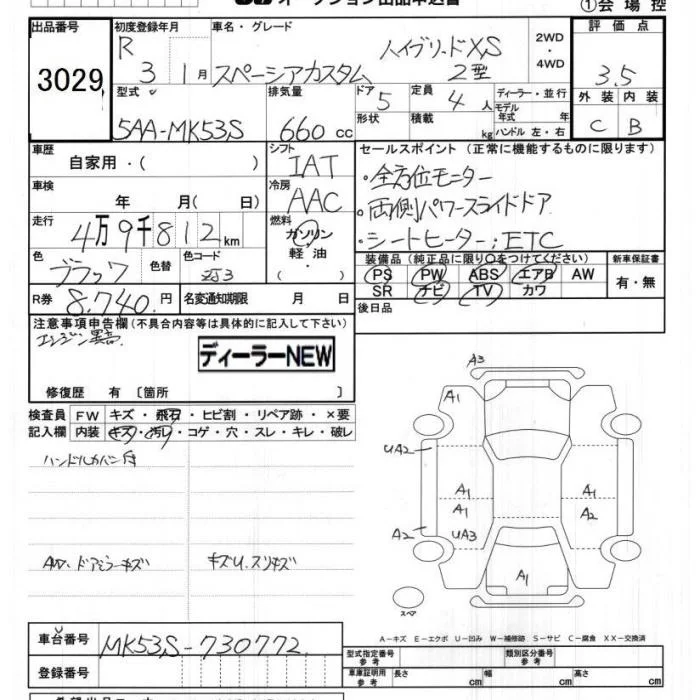 オークション出品申込書
①会場控
出品番号
3029
初度登録年月
R 3 1月
車名・グレード
スペーシアカスタム ハイブリッドXS 2型
2WD
・
4WD
評価点
3.5
外装 内装
C B
型式
5AA-MK53S
排気量
660 cc
ドア 5
形状
定員 4 人
積載 kg
ディーラー・並行
モデル年式 年
ハンドル 左・右
車歴
自家用・( )
シフト
IAT
セールスポイント (正常に機能するものに限ります)
・全方位モニター
・両側パワースライドドア
・シートヒーター;ETC
車検
年 月( 日)
冷房
AAC
走行
4万9千812km
燃料
ガソリン
軽油
( )
色
ブラック
色替
色コード
ZJ3
装備品 (純正品に限り○をつけてください)
PS PW ABS エアB AW
SR ナビ TV カワ
新車保証書
有・無
R券 8,740.円
名変通知期限 月 日
後日品
注意事項申告欄(不具合内容等は具体的に記入して下さい)
エンジン異音
ディーラーNEW
修復歴 有 〔箇所 〕
検査員
記入欄
FW キズ・飛石・ヒビ割・リペア跡・×要
内装 キズ・汚レ・コゲ・穴・スレ・キレ・破レ
ハンドルカバー付
AW・ドアミラーキズ キズU.スリキズ
A3
A1
UA2
A1 A1
A1 A2
A2 UA3
A1
スペア
A-キズ E-エクボ U-凹み W-補修跡 S-サビ C-腐食 XX-交換済
車台番号
MK53S-730772
登録番号
型式指定番号
参考
類別区分番号
参考
車庫証明用
参考
長さ cm 幅 cm 高さ cm